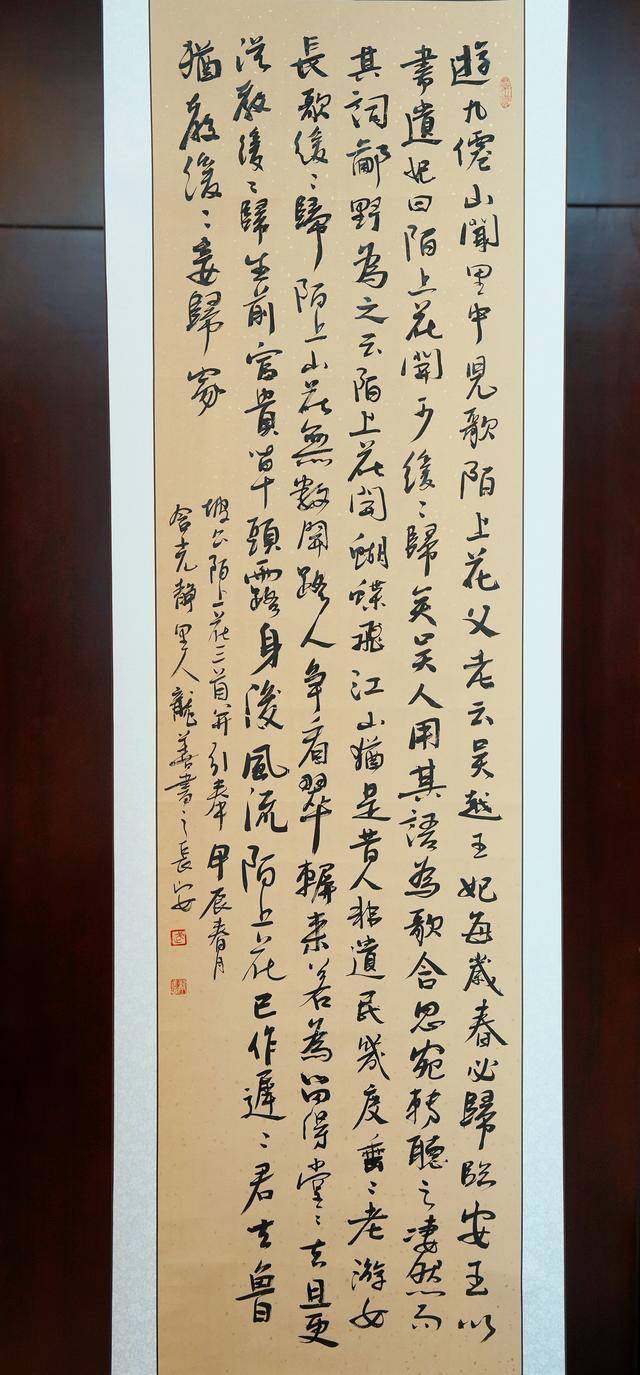 遊九僊山聞里中兒歌陌上花父老云吳越王妃每歲春必歸臨安王以
書遺妃曰陌上花開可緩〻歸矣吳人用其語為歌含思宛轉聽之凄然而
其詞鄙野為之云陌上花開蝴蝶飛江山猶是昔人非遺民幾度垂〻老游女
長歌緩〻歸陌上山花無數開路人爭看翠軿來若為留得堂〻去且更
從教緩〻歸生前富貴草頭露身後風流陌上花已作遲〻君去魯
猶教緩〻妾歸家
坡公陌上花三首并引奉甲辰春月
靜里人龍善書之長安